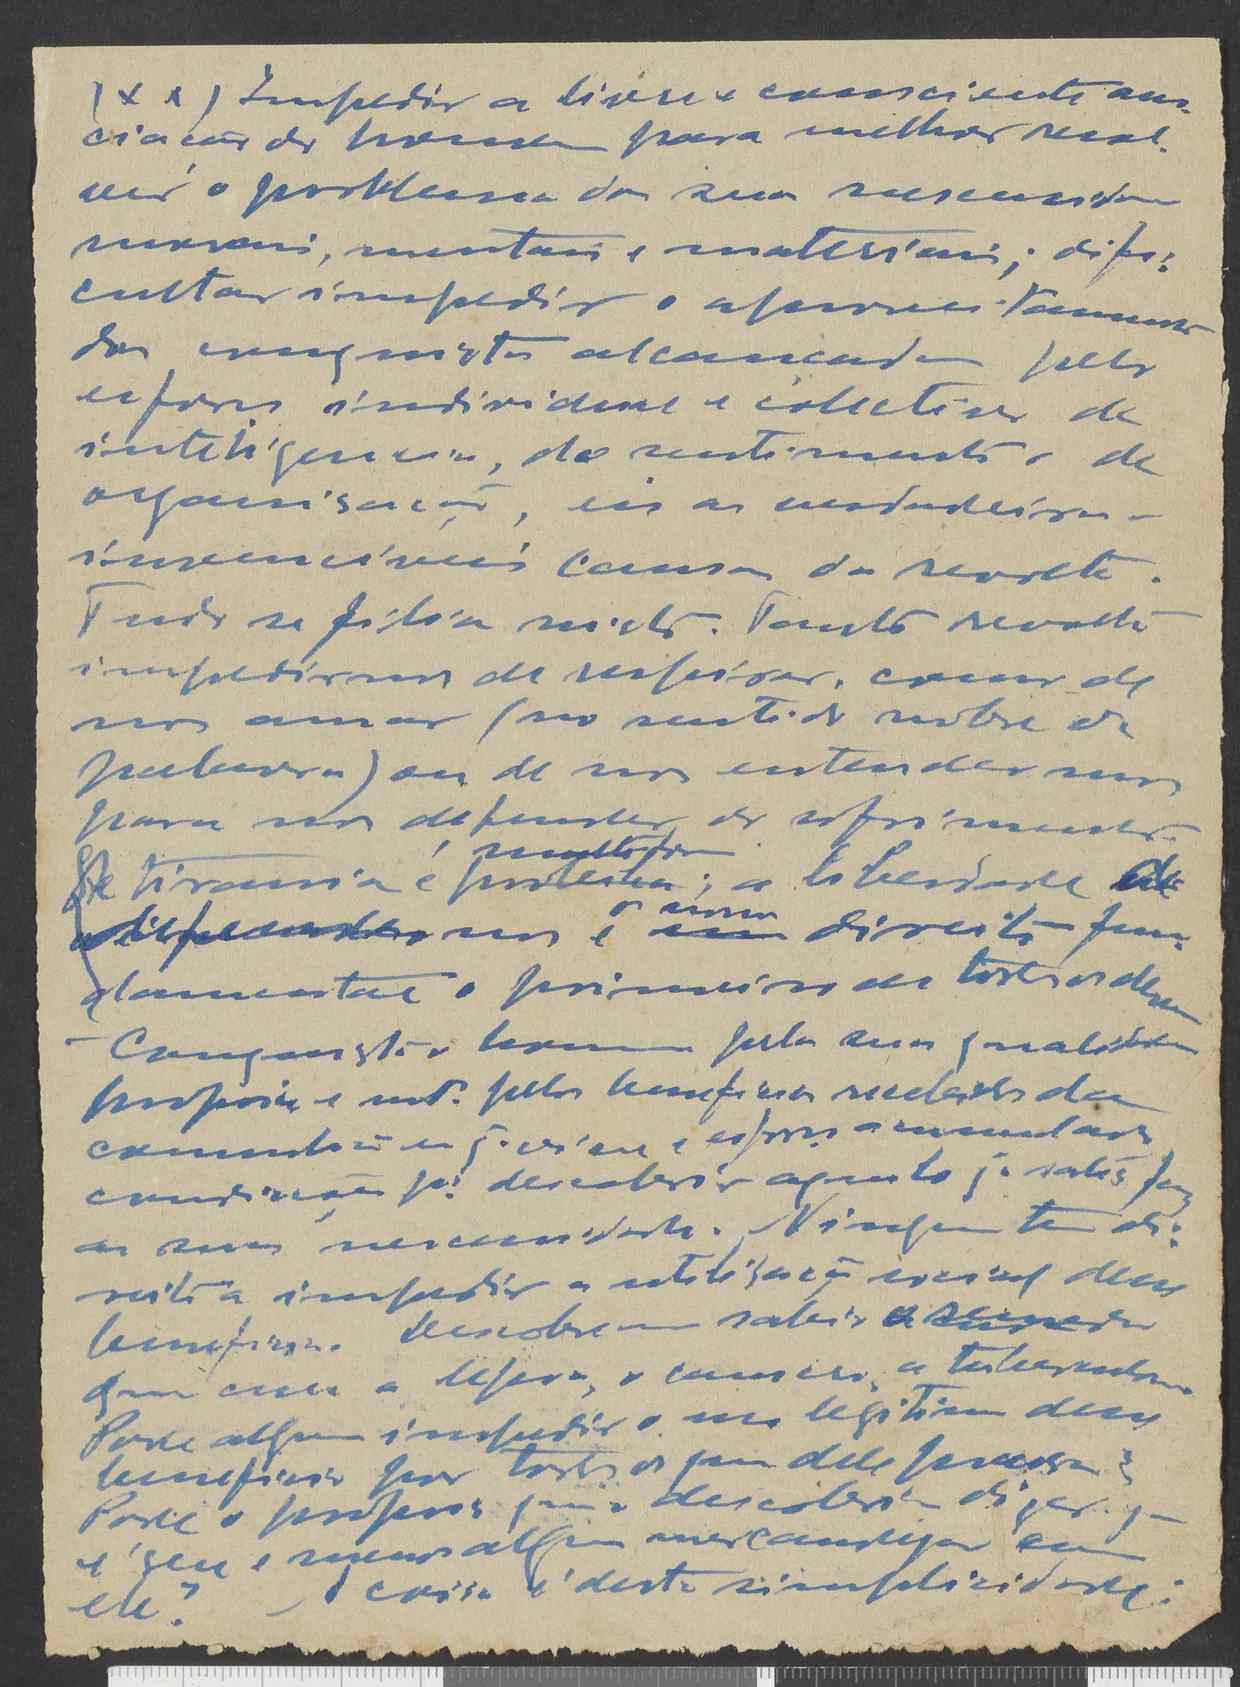 (x x) Impedir a livre e consciente asso-
ciação do homem para melhor resol-
ver o problema das suas necessidades
morais, mentais e materiais; difi-
cultar impedir o aproveitamento
das conquistas alcançadas pelo
esforço individual e colectivo da
inteligencia, do sentimento e da
organisação, eis as verdadeiras e
invenciveis causas da revolta.
Tudo se filia nisto. Tanto revolta
impedirnos de respirar, como de
nos amar (no sentido nobre da
palavra) ou de nos entendermos
para nos defender do sofrimento.
tirania é multiforme; a liberdade
é o nosso direito fun-
damental o primeiro de todos os
- Conquista o homem pelas suas qualidades
proprias e pelos beneficios recebidos da
em q. vive e esforço acumulado
condições pª descobrir aquilo q. satisfaz
as suas necessidades. Ninguem tem di-
reito a impedir a utilisação social desse
beneficio. Descobrem
que cura a lepra, o cancro, a tuberculose.
Pode alguem impedir o uso legitimo desse
beneficio por todos os que dele precisam?
Pode o proprio que o descobriu dizer q.
é seu e mercandejar com
ele? A coisa é desta simplicidade: